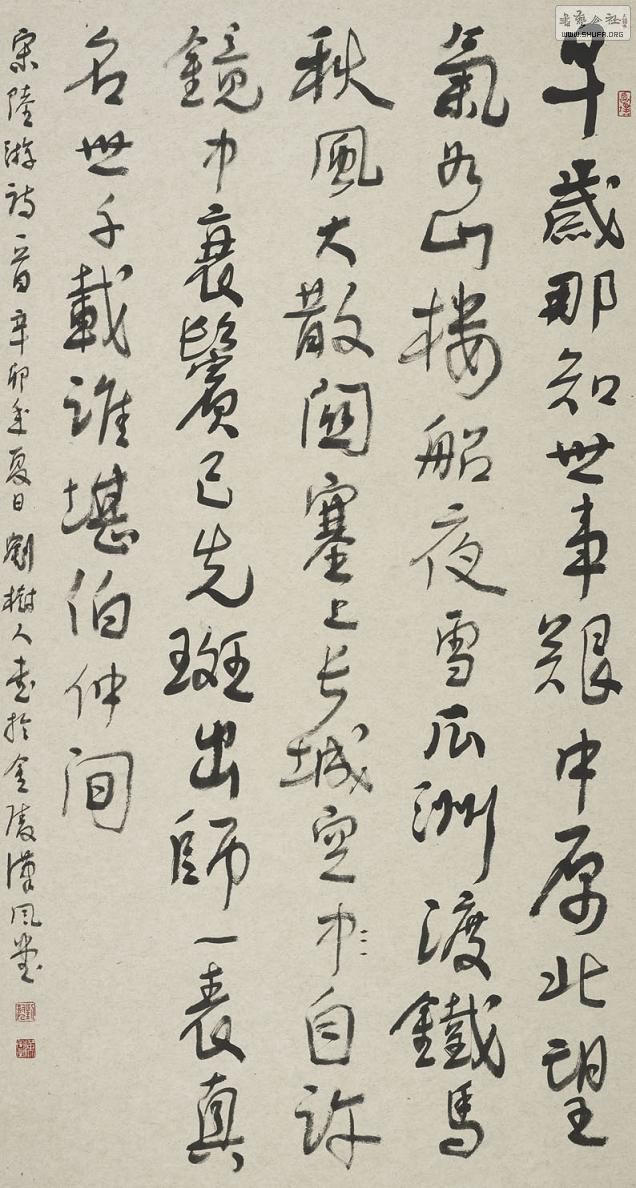 早歲那知世事艱中原北望
氣如山樓船夜雪瓜洲渡鐵馬
秋風大散關塞上長城空中自許
鏡中衰鬢已先斑出師一表真
名世千載誰堪伯仲間
宋陸游詩一首辛卯年夏日劉樹人書於金陵漢風堂
書藝公社
WWW.SHUFA.ORG